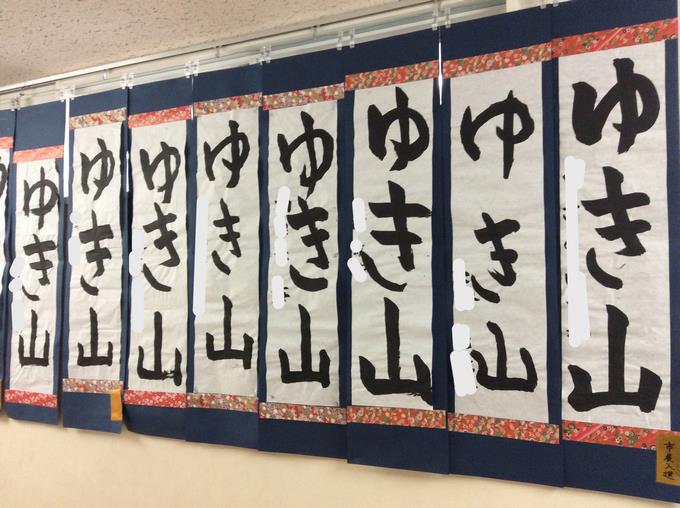 ゆき山
ゆき山
ゆき山
ゆき山
ゆき山
ゆき山
ゆき山
ゆき山
市展入選